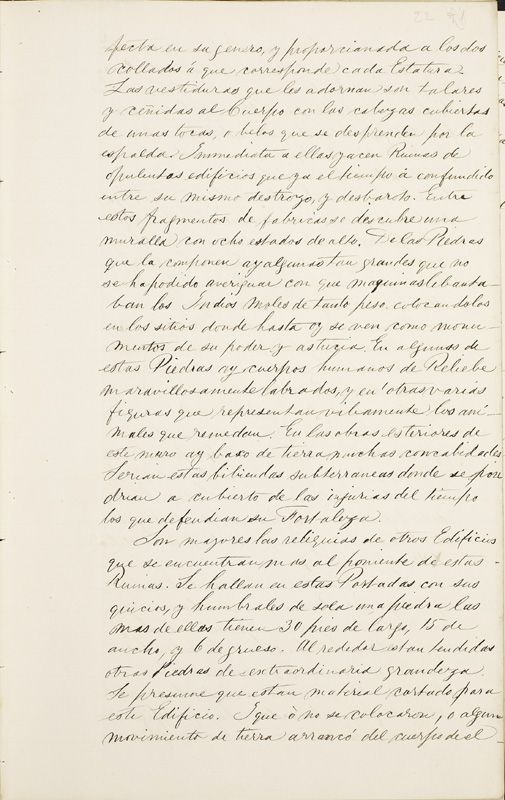 22 91
fecta en su genero, y proporcionada a los dos
collados á que corresponde cada Estatura.
Las vestiduras que les adornan son talares
y ceñidas al Cuerpo con las cabezas cubiertas
de unas tocas, o belos que se desprenden por la
espalda. Immediata a ellas yacen Ruinas de
opulentos edificios que ya el tiempo á confundido
entre su mismo destrozo, y desbarato. Entre
estos fragmentos de fabricas se descubre una
muralla con ocho estados de alto. De las Piedras
que la componen ay algunas tan grandes que no
se ha podido averiguar con que maquinas lebanta-
ban los Indios moles de tanto peso, colocandolos
en los sitios donde hasta oy se ven como monu-
mentos de su poder y astucia. En algunas de
estas Piedras ay cuerpos humanos de Reliebe
maravillosamente labrados, y en otras varias
figuras que representan vibamente los ani-
males que remedan. En las obras esteriores de
este muro ay baxo de tierra muchas concabidades
Serian estas bibiendas subterraneas donde se pon
drian a cubierto de las injurias del tiempo
los que defendian su Fortaleza.
Son mayores las reliquias de otros Edificios
que se encuentran mas al poniente de estas
Ruinas. Se hallan en estas Portadas con sus
quicios, y humbrales de sola una piedra las
mas de ellas tienen 30 pies de largo, 15 de
ancho, y 6 de grueso. Al rededor estan tendidas
otras Piedras de extraordinaria grandeza.
Se presume que estan material cortado para
este Edificio. I que ò no se colocaron, o algun
movimiento de tierra arrancó del cuerpo de el